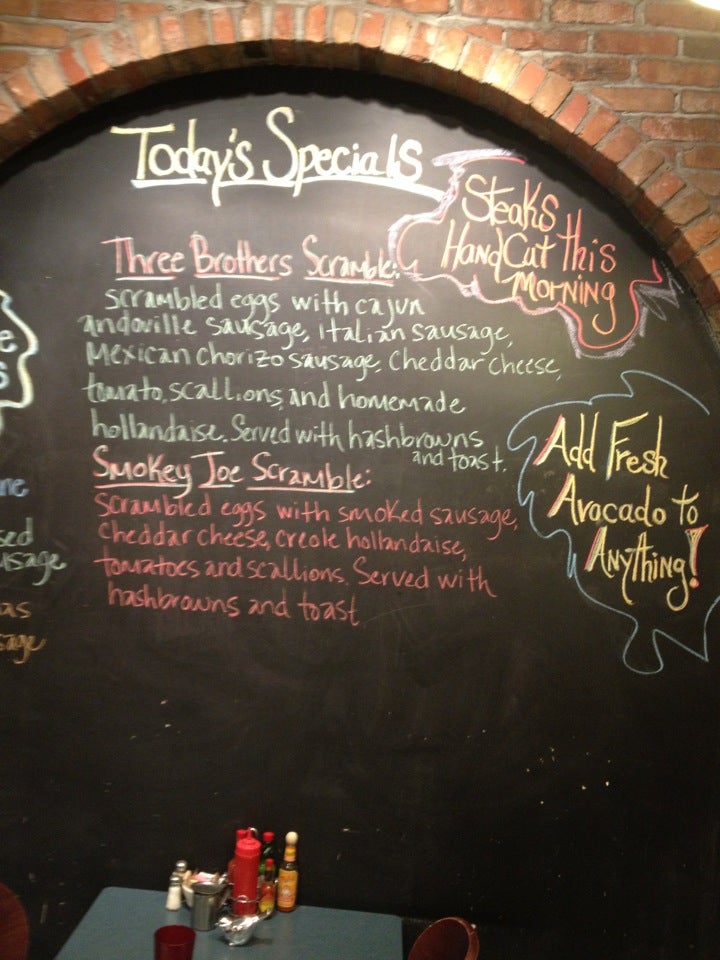 Today's Specials
Steaks
Hand Cut this
Morning
Three Brothers Scramble:
scrambled eggs with cajun
andoville sausage, Italian sausage,
Mexican chorizo sausage, cheddar cheese,
tomato, scallions, and homemade
hollandaise. Served with hashbrowns
and toast.
Smokey Joe Scramble:
scrambled eggs with smoked sausage,
cheddar cheese, creole hollandaise,
tomatoes and scallions. Served with
hashbrowns and toast
Add Fresh
Avocado to
Anything!